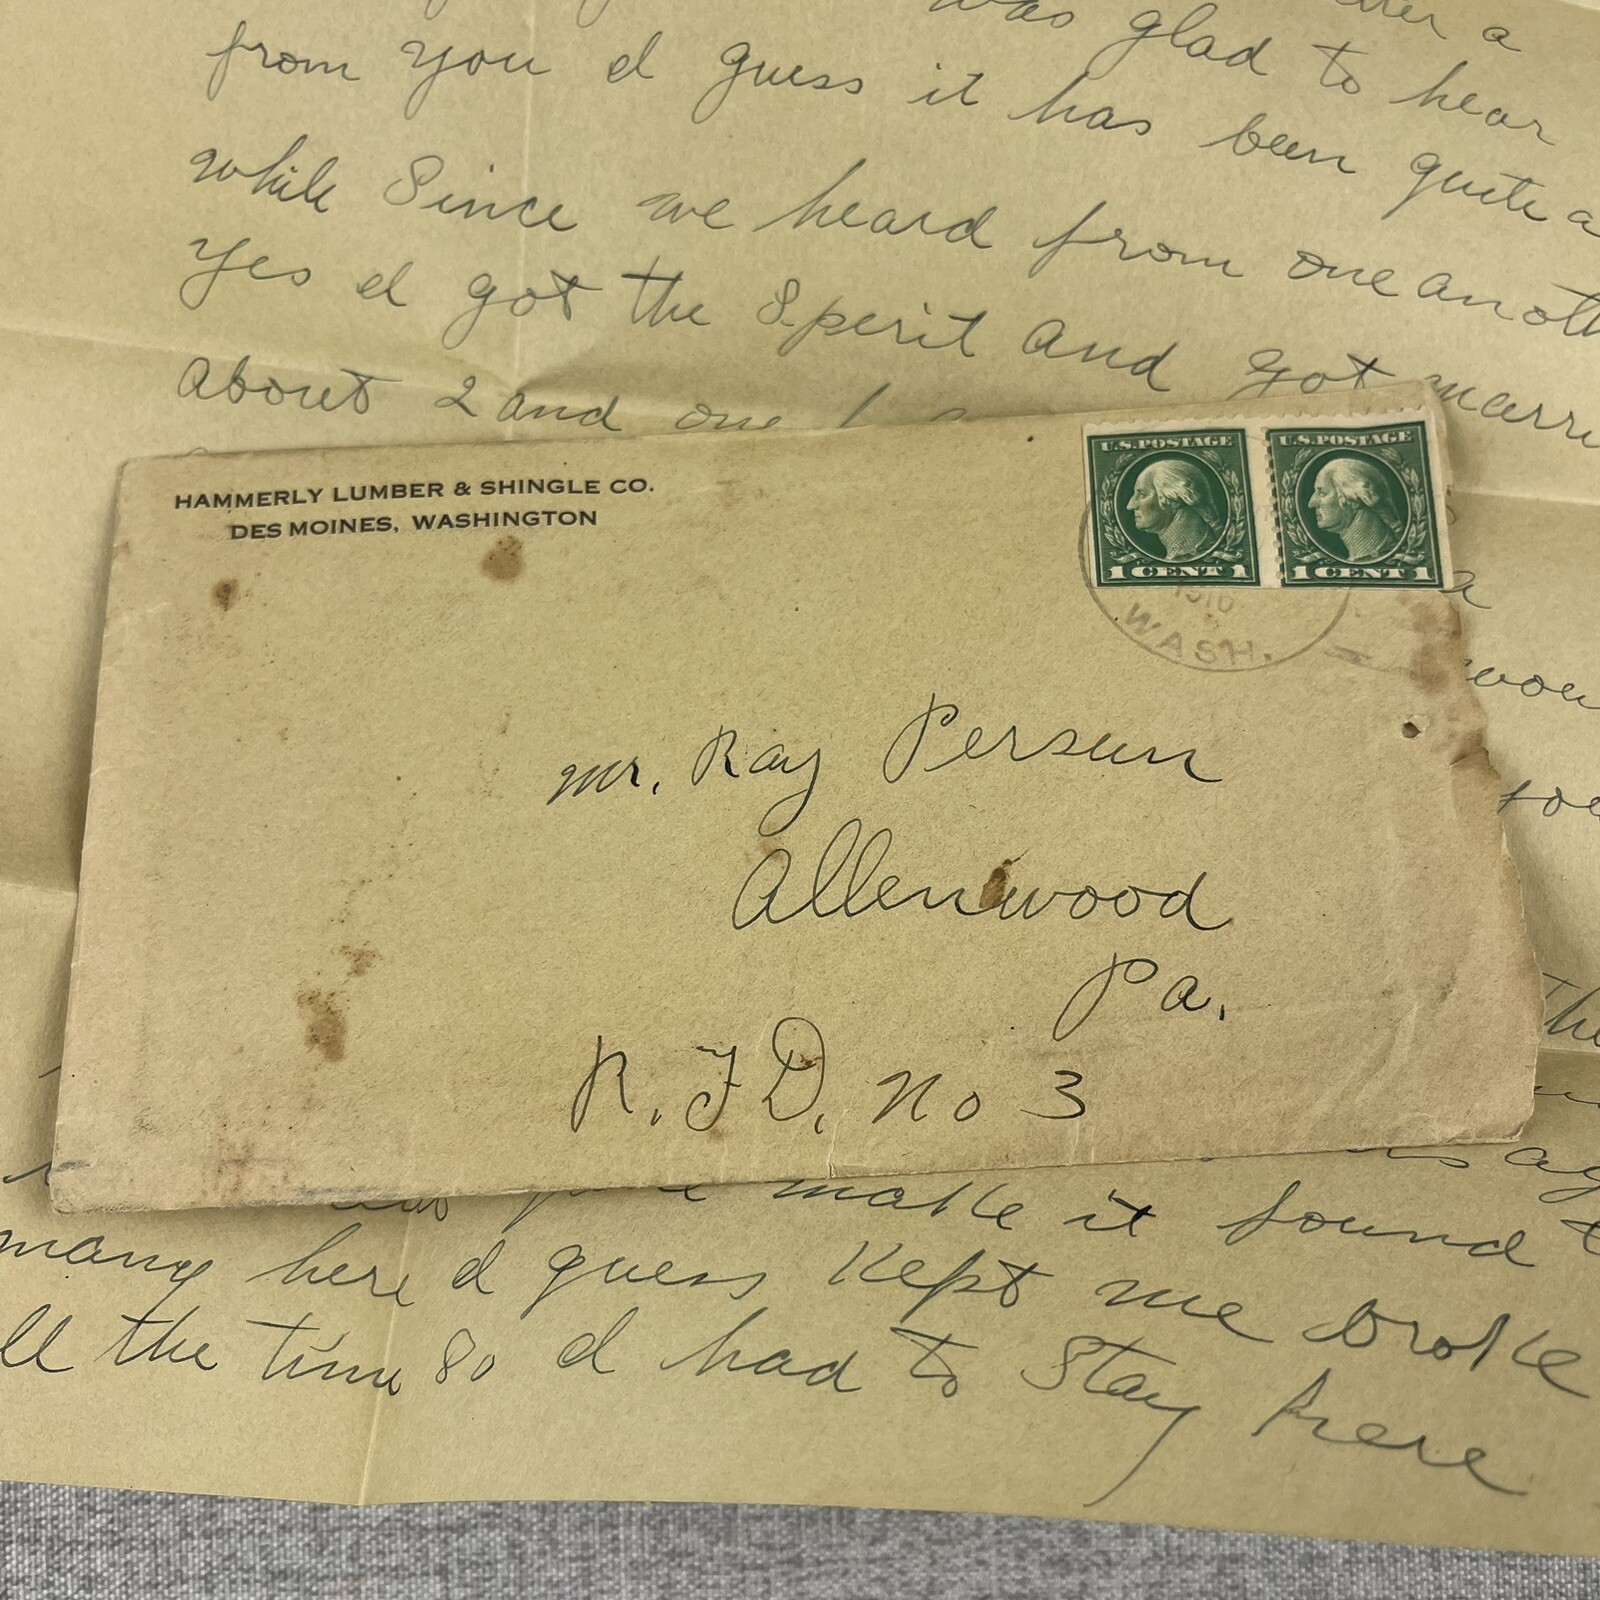 was
a
from you I guess it has been quite a
glad to hear
while Since we heard from one anoth
Yes I got the Sperit and got marri
about 2 and one
HAMMERLY LUMBER & SHINGLE CO.
DES MOINES, WASHINGTON
U.S. POSTAGE
1 CENT 1
U.S. POSTAGE
1 CENT 1
WASH.
Mr. Ray Persun
Allenwood
Pa.
R.F.D. No 3
a
wou
The
make it found
many here I guess Kept me broke
ll the time So I had to Stay here